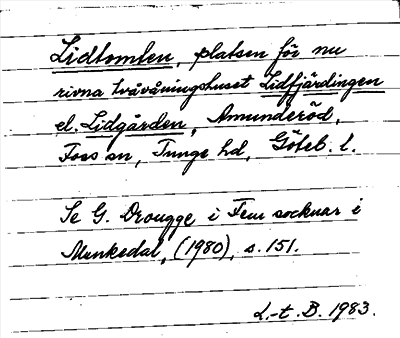 Lidtomten, platsen för nu
rivna tvåvåningshuset Lidfjärdingen
el. Lidgården, Amunderöd,
Foss sn, Tunge hd, Göteb. l.
Se G. Drougge i Fem socknar i
Munkedal, (1980), s. 151.
L.-t. B. 1983.